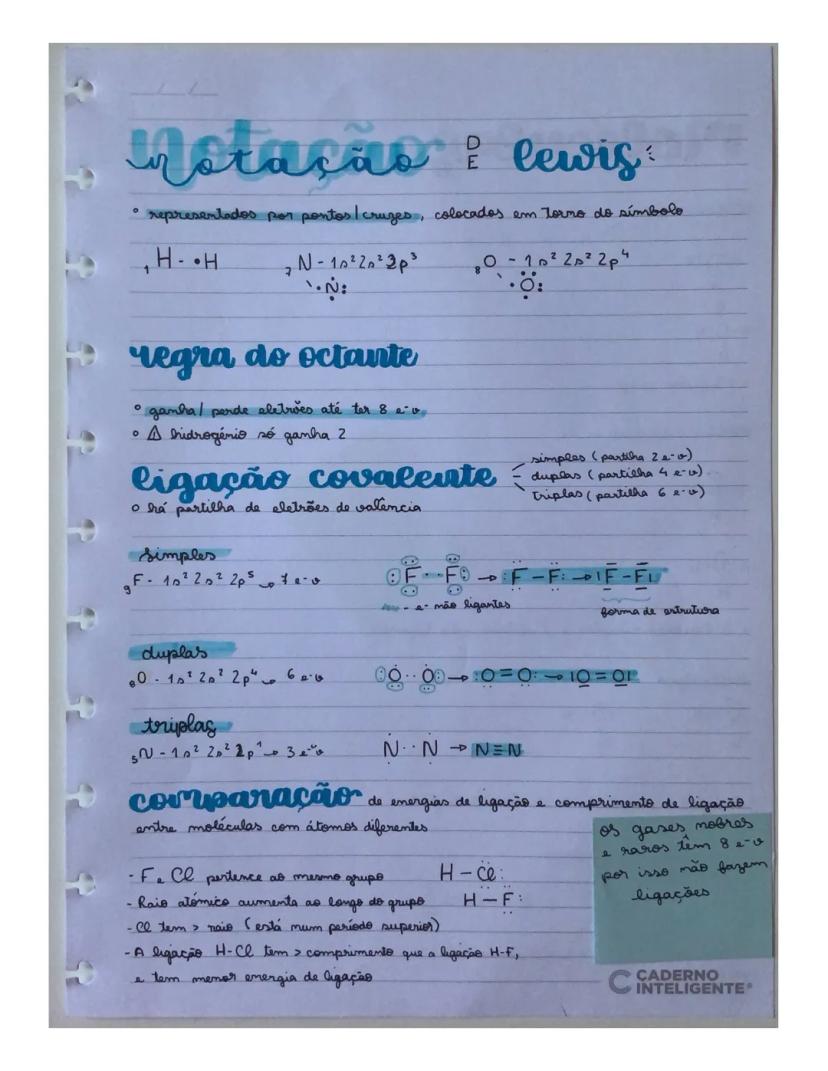 notação DE lewis
° representados por pontos/cruzes, colocados em torno do símbolo
₁H - •H ₇N - 1s² 2s² 2p³ ₈O - 1s² 2s² 2p⁴
N: O:
regra do octante
° ganha/perde eletrões até ter 8 e-v
° ⚠ hidrogénio só ganha 2
ligação covalente
simples (partilha 2 e-v)
duplas (partilha 4 e-v)
triplas (partilha 6 e-v)
° há partilha de eletrões de valência
simples
₉F - 1s² 2s² 2p⁵ → 7 e-v :F··F: → :F-F: → |F-F|
- e- não ligantes forma de estrutura
duplas
₈O - 1s² 2s² 2p⁴ → 6 e-v :O··O: → :O=O: → |O=O|
triplas
₅N - 1s² 2s² 2p¹ → 3 e-v N··N → N≡N
comparação de energias de ligação e comprimento de ligação
entre moléculas com átomos diferentes
- F e Cl pertence ao mesmo grupo H - Cl:
- Raio atómico aumenta ao longo do grupo H - F:
- Cl tem > raio (está num período superior)
- A ligação H-Cl tem > comprimento que a ligação H-F,
e tem menor energia de ligação
os gases nobres
e raros têm 8 e-v
por isso não fazem
ligações
CADERNO
INTELIGENTE®